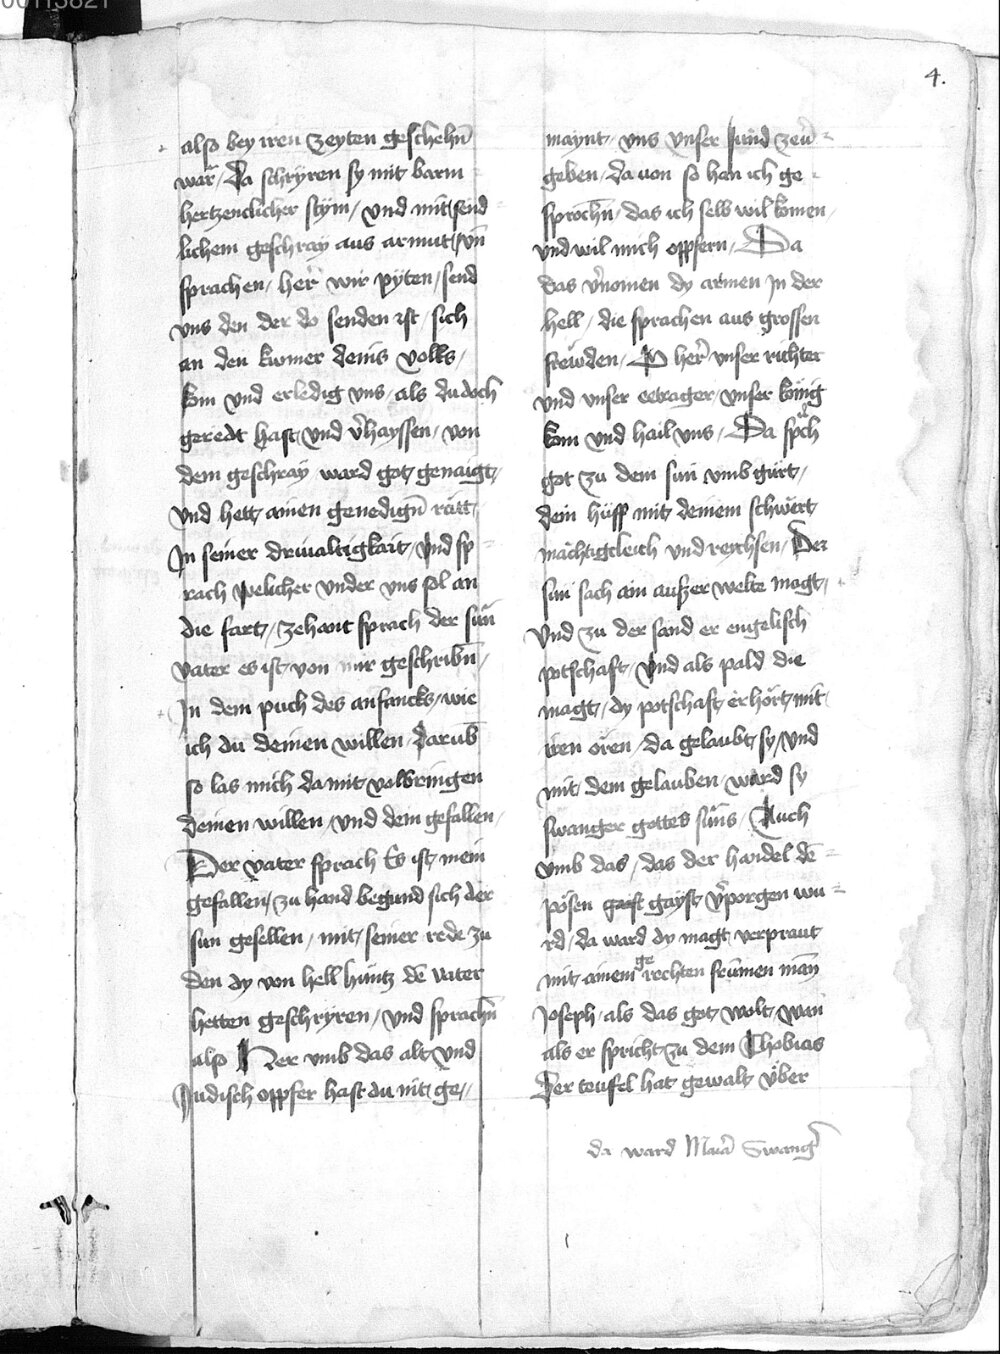 00113821
4.
also bey iren zeyten geschehn̄
war / Da schryren sy mit barm
hertzenclicher stym / vnd mit send
lichem geschray aus armut / vn̄
sprachen / her wir pyten / send
vns den der do senden ist / sich
an den kumer deins volks /
kom vnd erledig vns / als du doch
geredt hast / vnd v̄hayssen / von
dem geschray ward got genaigt /
vnd hett ainen genedign̄ ratt /
In seiner driualtigkait / vnd sp
rach welicher vnder vns sol an
die fart / zehant sprach der sun
vater es ist von mir geschribn̄ /
In dem puch des anfancks / wie
ich du deinen willen / darub̄
so las mich da mit volbringen
deinen willen / vnd dein gefallen /
Der vater sprach Es ist mein
gefallen / zu hand begund sich der
sun gesellen / mit seiner rede zu
den dy von hell hüntz de᷉ vater
hetten geschryren / vnd sprachn̄
also Her vmb das alt vnd
Judisch oppfer hast du nit ge /
maynt / vns vnser sünd zeu᷉
geben / da uon so han ich ge
sprochn̄ / das ich selb wil komen /
vnd wil mich oppfern / Da
das v̄nomen dy armen in der
hell / die sprachen aus grossen
frewden / O her᷉ vnser richter
vnd vnser eetrager / vnser könig
kom vnd hail vns / Da spͣch
got zu dem sun vmb gürt /
dein hüff mit deinem schwert
mächtigcleich vnd reychsen / Der
sun sach ain auszer welte magt /
vnd zu der sand er engelisch
potschaft / vnd als pald die
magt / dy potschaft erhört / mit
iren oren / da gelaubt sy / vnd
mit dem gelauben ward sy
swanger gottes suns / Auch
vmb das / das der handel de᷉
pösen gast gayst v̄porgen wu
rd / da ward dy magt verpraut
mit ainem ge rechten frumen man̄
Joseph / als das got wolt / wan
als er spricht zu dem Thobias
Der teufel hat gewalt vber
da ward Maria Swang᷉